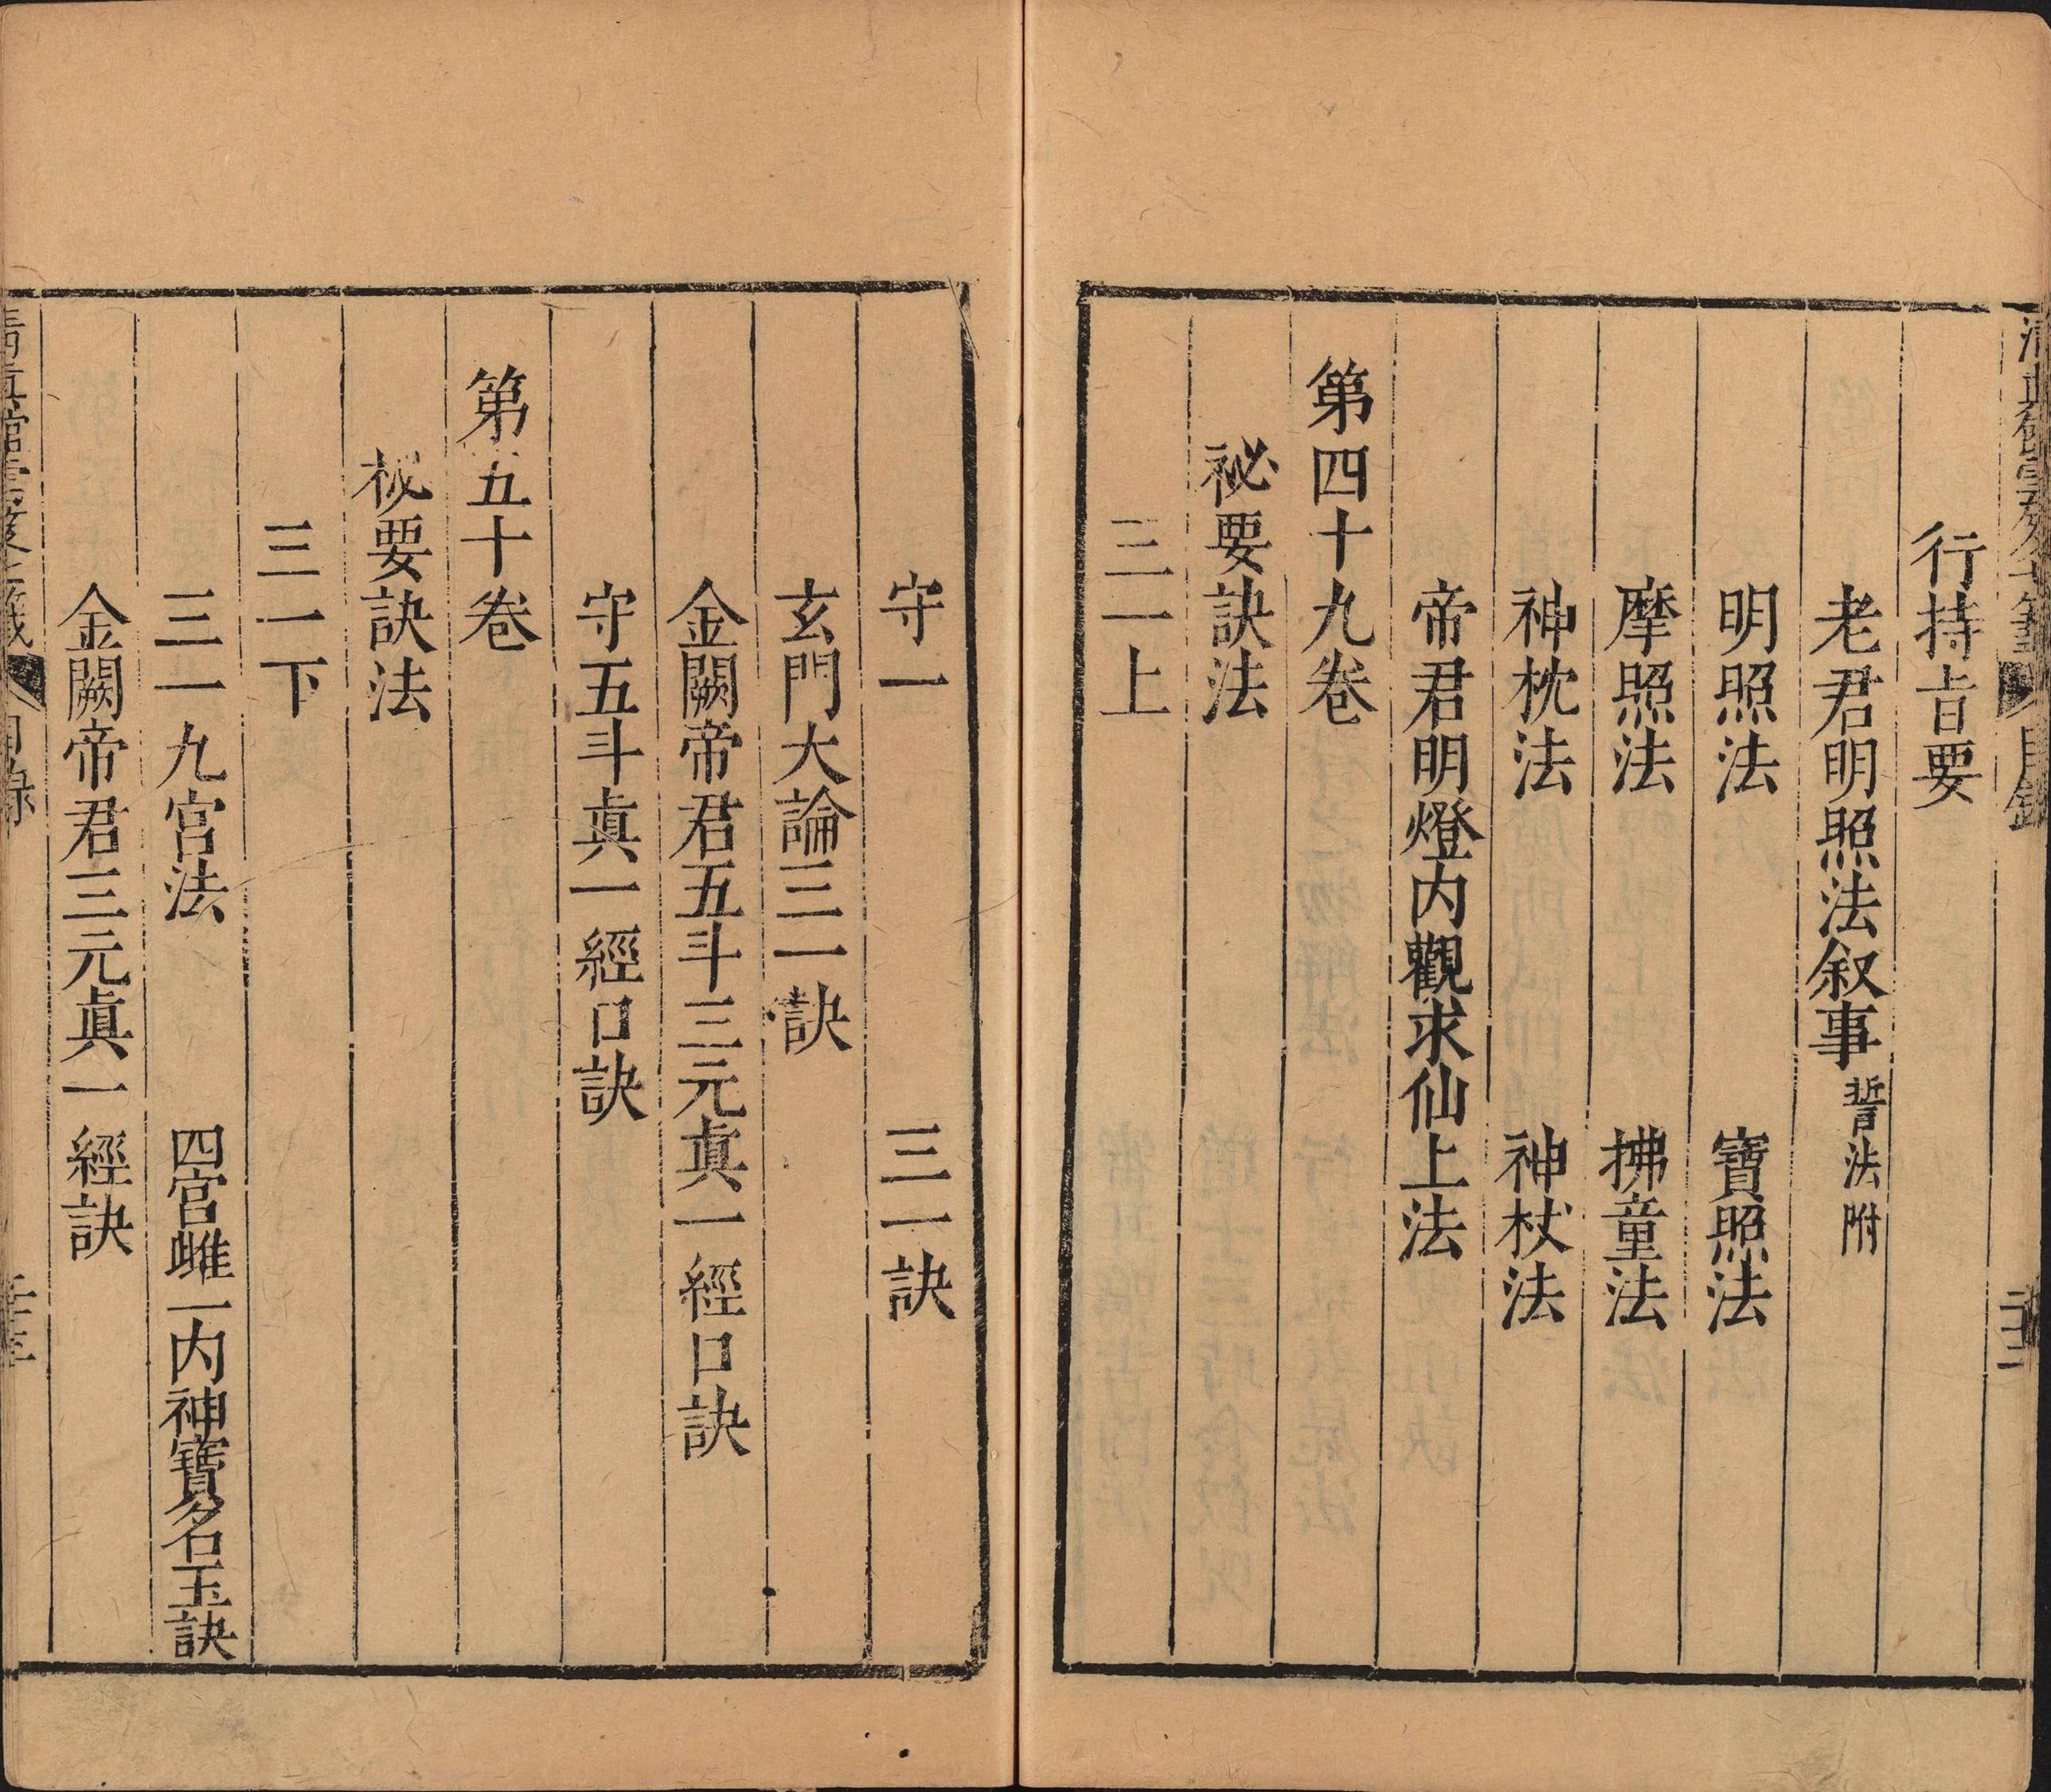 行持旨要
老君明照法叙事 誓法附
明照法 寶照法
摩照法 拂童法
神枕法 神杖法
帝君明燈内觀求仙上法
第四十九卷
祕要訣法
三一上
守一 三一訣
玄門大論三一訣
金闕帝君五斗三元眞一經口訣
守五斗眞一經口訣
第五十卷
祕要訣法
三一下
三一九宫法 四宫雌一内神寶名玉訣
金闕帝君三元眞一經訣